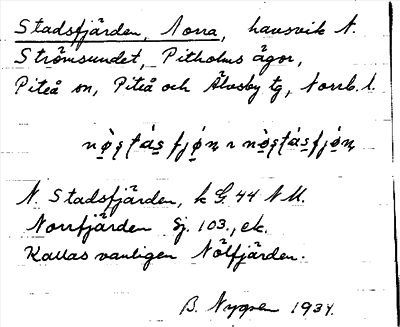 Stadsfjärden, Norra, havsvik N.
Strömsundet, Pitholms ägor,
Piteå sn, Piteå och Älvsby tg, Norrb. l.
N. Stadsfjärden, k G. 44 N
Norrfjärden Sj. 103., ek.
Kallas vanligen Nölfjärden.
B. Nygren 1934.